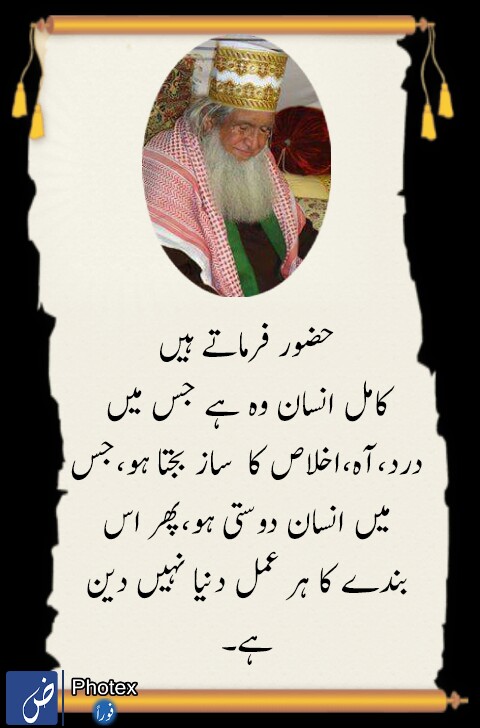 حضور فرماتے ہیں
کامل انسان وہ ہے جس میں
درد،آہ،اخلاص کا ساز بجتا ہو،جس
میں انسان دوستی ہو،پھر اس
بندے کا ہر عمل دنیا نہیں دین
ہے۔
ض Photex
فوراً